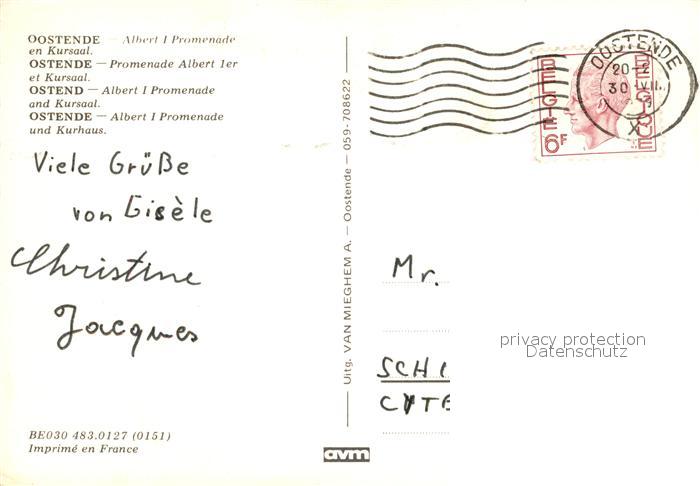 OOSTENDE — Albert I Promenade
en Kursaal.
OSTENDE — Promenade Albert 1er
et Kursaal.
OSTEND — Albert I Promenade
and Kursaal.
OSTENDE — Albert I Promenade
und Kurhaus.
Viele Grüße
von Gisèle
Christine
Jacques
BE030 483.0127 (0151)
Imprimé en France
Uitg. VAN MIEGHEM A. — Oostende — 059-708622
avm
OOSTENDE
20-
30 VII
X
BELGIE
BELGIQUE
6F
Mr.
SCHI
privacy protection
Datenschutz